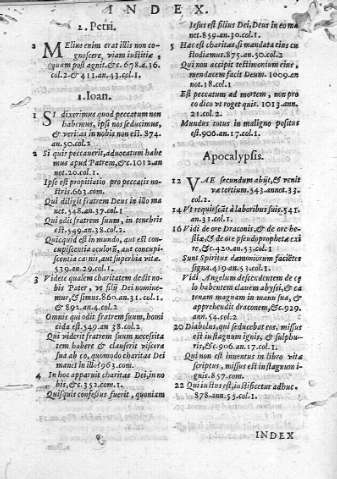 INDEX.
2. Petri.
2 MElius enim erat illis non co-
gnoscere, viam iustitiæ,
quam post agnit. &c. 678. a 16.
col.2 & 411.an.43.col.1.
1. Ioan.
1 SI dixerimus quod peccatum non
habemus, ipsi nos seducimus,
& veritas in nobis non est. 874.
an.50.col.2
2 Si quis peccauerit, aduocatum habe
mus apud Patrem, &c. 1012.an
not.20.col.1.
Ipse est propitiatio pro peccatis no-
stris. 663.com.
Qui diligit fratrem Deus in illo ma
net. 548.an.37.col.1
Qui odit fratrem suum, in tenebris
est. 549.an.38.col.2.
Quicquid est in mundo, aut est con-
cupiscentia oculorũ, aut concupi-
scentia carnis, aut superbia vitæ.
539.an.29.col.1.
3 Videte qualem charitatem dedit no
bis Pater, vt filij Dei nomine-
mur, & simus. 860.an.31.col.1.
& 892.an.4.col.1
Omnis qui odit fratrem suum, homi
cida est. 549.an 38.col.2.
Qui viderit fratrem suum necessita
tem habere & clauserit viscera
sua ab eo, quomodo charitas Dei
manet in illo? 963.com.
4 In hoc apparuit charitas Dei, in no
bis, &c. 352.com.1.
Quisquis confessus fuerit, quoniam
Iesus est filius Dei, Deus in eo ma
net. 859.an.30.col.1.
5 Hæc est charitas si mandata eius cu
stodiamus. 875.an.50.col.2
Qui non accipit testimonium eius,
mendacem facit Deum. 1009.an
not.18.col.1.
Est peccatum ad mortem, non pro
eo dico vt roget quis. 1013.ann.
21.col.2.
Mundus totus in maligno positus
est. 906.an.17.col.1.
Apocalypsis.
12 VAE secundum abijt, & venit
væ tertium. 543.annot.33.
col.2.
14 Vt requiescãt à laboribus suis. 541.
an.31.col.1.
16 Vidi de ore Draconis, & de ore be-
stiæ, & de ore pseudoprophetæ exi
re, &c. 420.an.53.col.1
Sunt Spiritus dæmoniorum faciẽtes
signa. 419.an.53.col.1.
Vidi Angelum descendentem de cę
lo habentem clauem abyssi, & ca
tenam magnam in manu sua, &
apprehendit draconem, &c. 929.
ann.54.col.2
20 Diabolus, qui seducebat eos, missus
est in stagnum ignis, & sulphu-
ris, &c. 906.an.17.col.1.
Qui non est inuentus in libro vitæ
scriptus, missus est in stagnum i-
gnis. 857.com.
22 Qui iustus est, iustificetur adhuc.
878.ann.53.col.1.
INDEX